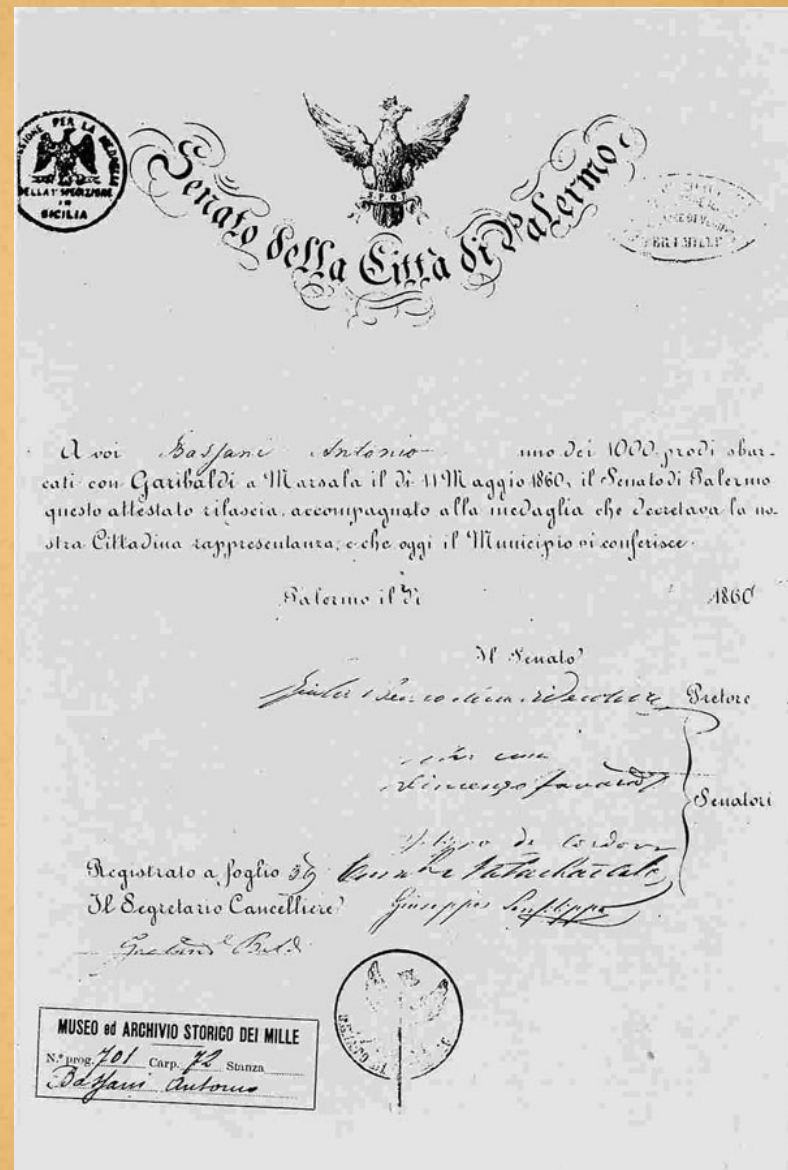 COMMISSIONE PER LA MEDAGLIA
DELLA 1ª SPEDIZIONE
IN
SICILIA
S.P.Q.P.
Senato della Città di Palermo
A voi Bassani Antonio uno dei 1000 prodi sbar-
cati con Garibaldi a Marsala il dì 11 Maggio 1860, il Senato di Palermo
questo attestato rilascia, accompagnato alla medaglia che decretava la no-
stra Cittadina rappresentanza, e che oggi il Municipio vi conferisce.
Palermo il dì 1860
Il Senato
Pretore
Vincenzo
Senatori
Filippo de Cordova
Registrato a foglio 59
Il Segretario Cancelliere
Giuseppe Sanfilippo
Gaetano
MUSEO ed ARCHIVIO STORICO DEI MILLE
N.° prog. 701 Carp. 72 Stanza
Bassani Antonio